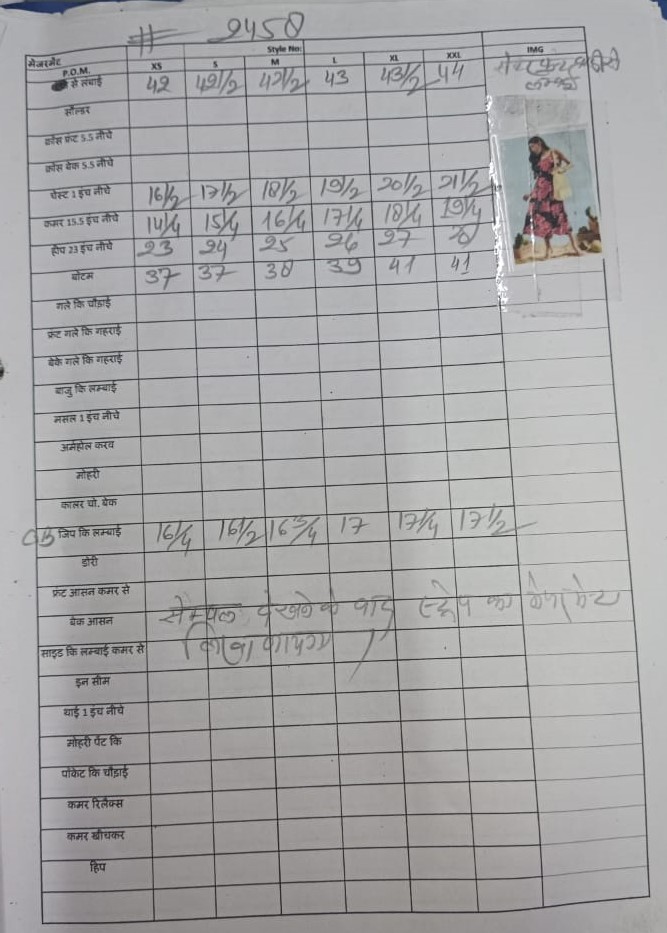 # 2458
Style No:
मेजरमेंट P.O.M. XS S M L XL XXL IMG
से लंबाई 42 42 1/2 42 1/2 43 43 1/2 44
सोल्डर
क्रॉस फ्रंट 5.5 नीचे
क्रॉस बेक 5.5 नीचे
चेस्ट 1 इंच नीचे 16 1/2 17 1/2 18 1/2 19 1/2 20 1/2 21 1/2
कमर 15.5 इंच नीचे 14 1/4 15 1/4 16 1/4 17 1/4 18 1/4 19 1/4
हीप 23 इंच नीचे 23 24 25 26 27 28
बॉटम 37 37 38 39 41 41
गले कि चौड़ाई
फ्रंट गले कि गहराई
बेके गले कि गहराई
बाजु कि लम्बाई
मसल 1 इंच नीचे
अर्महोल करव
मोहरी
कालर चो. बेक
CB जिप कि लम्बाई 16 1/4 16 1/2 16 3/4 17 17 1/4 17 1/2
डोरी
फ्रंट आसन कमर से
सेम्पल देखने के बाद स्ट्रेप का
बेक आसन
किया जायगा
साइड कि लम्बाई कमर से
इन सीम
थाई 1 इंच नीचे
मोहरी पेंट कि
पॉकेट कि चौड़ाई
कमर रिलैक्स
कमर खींचकर
हिप